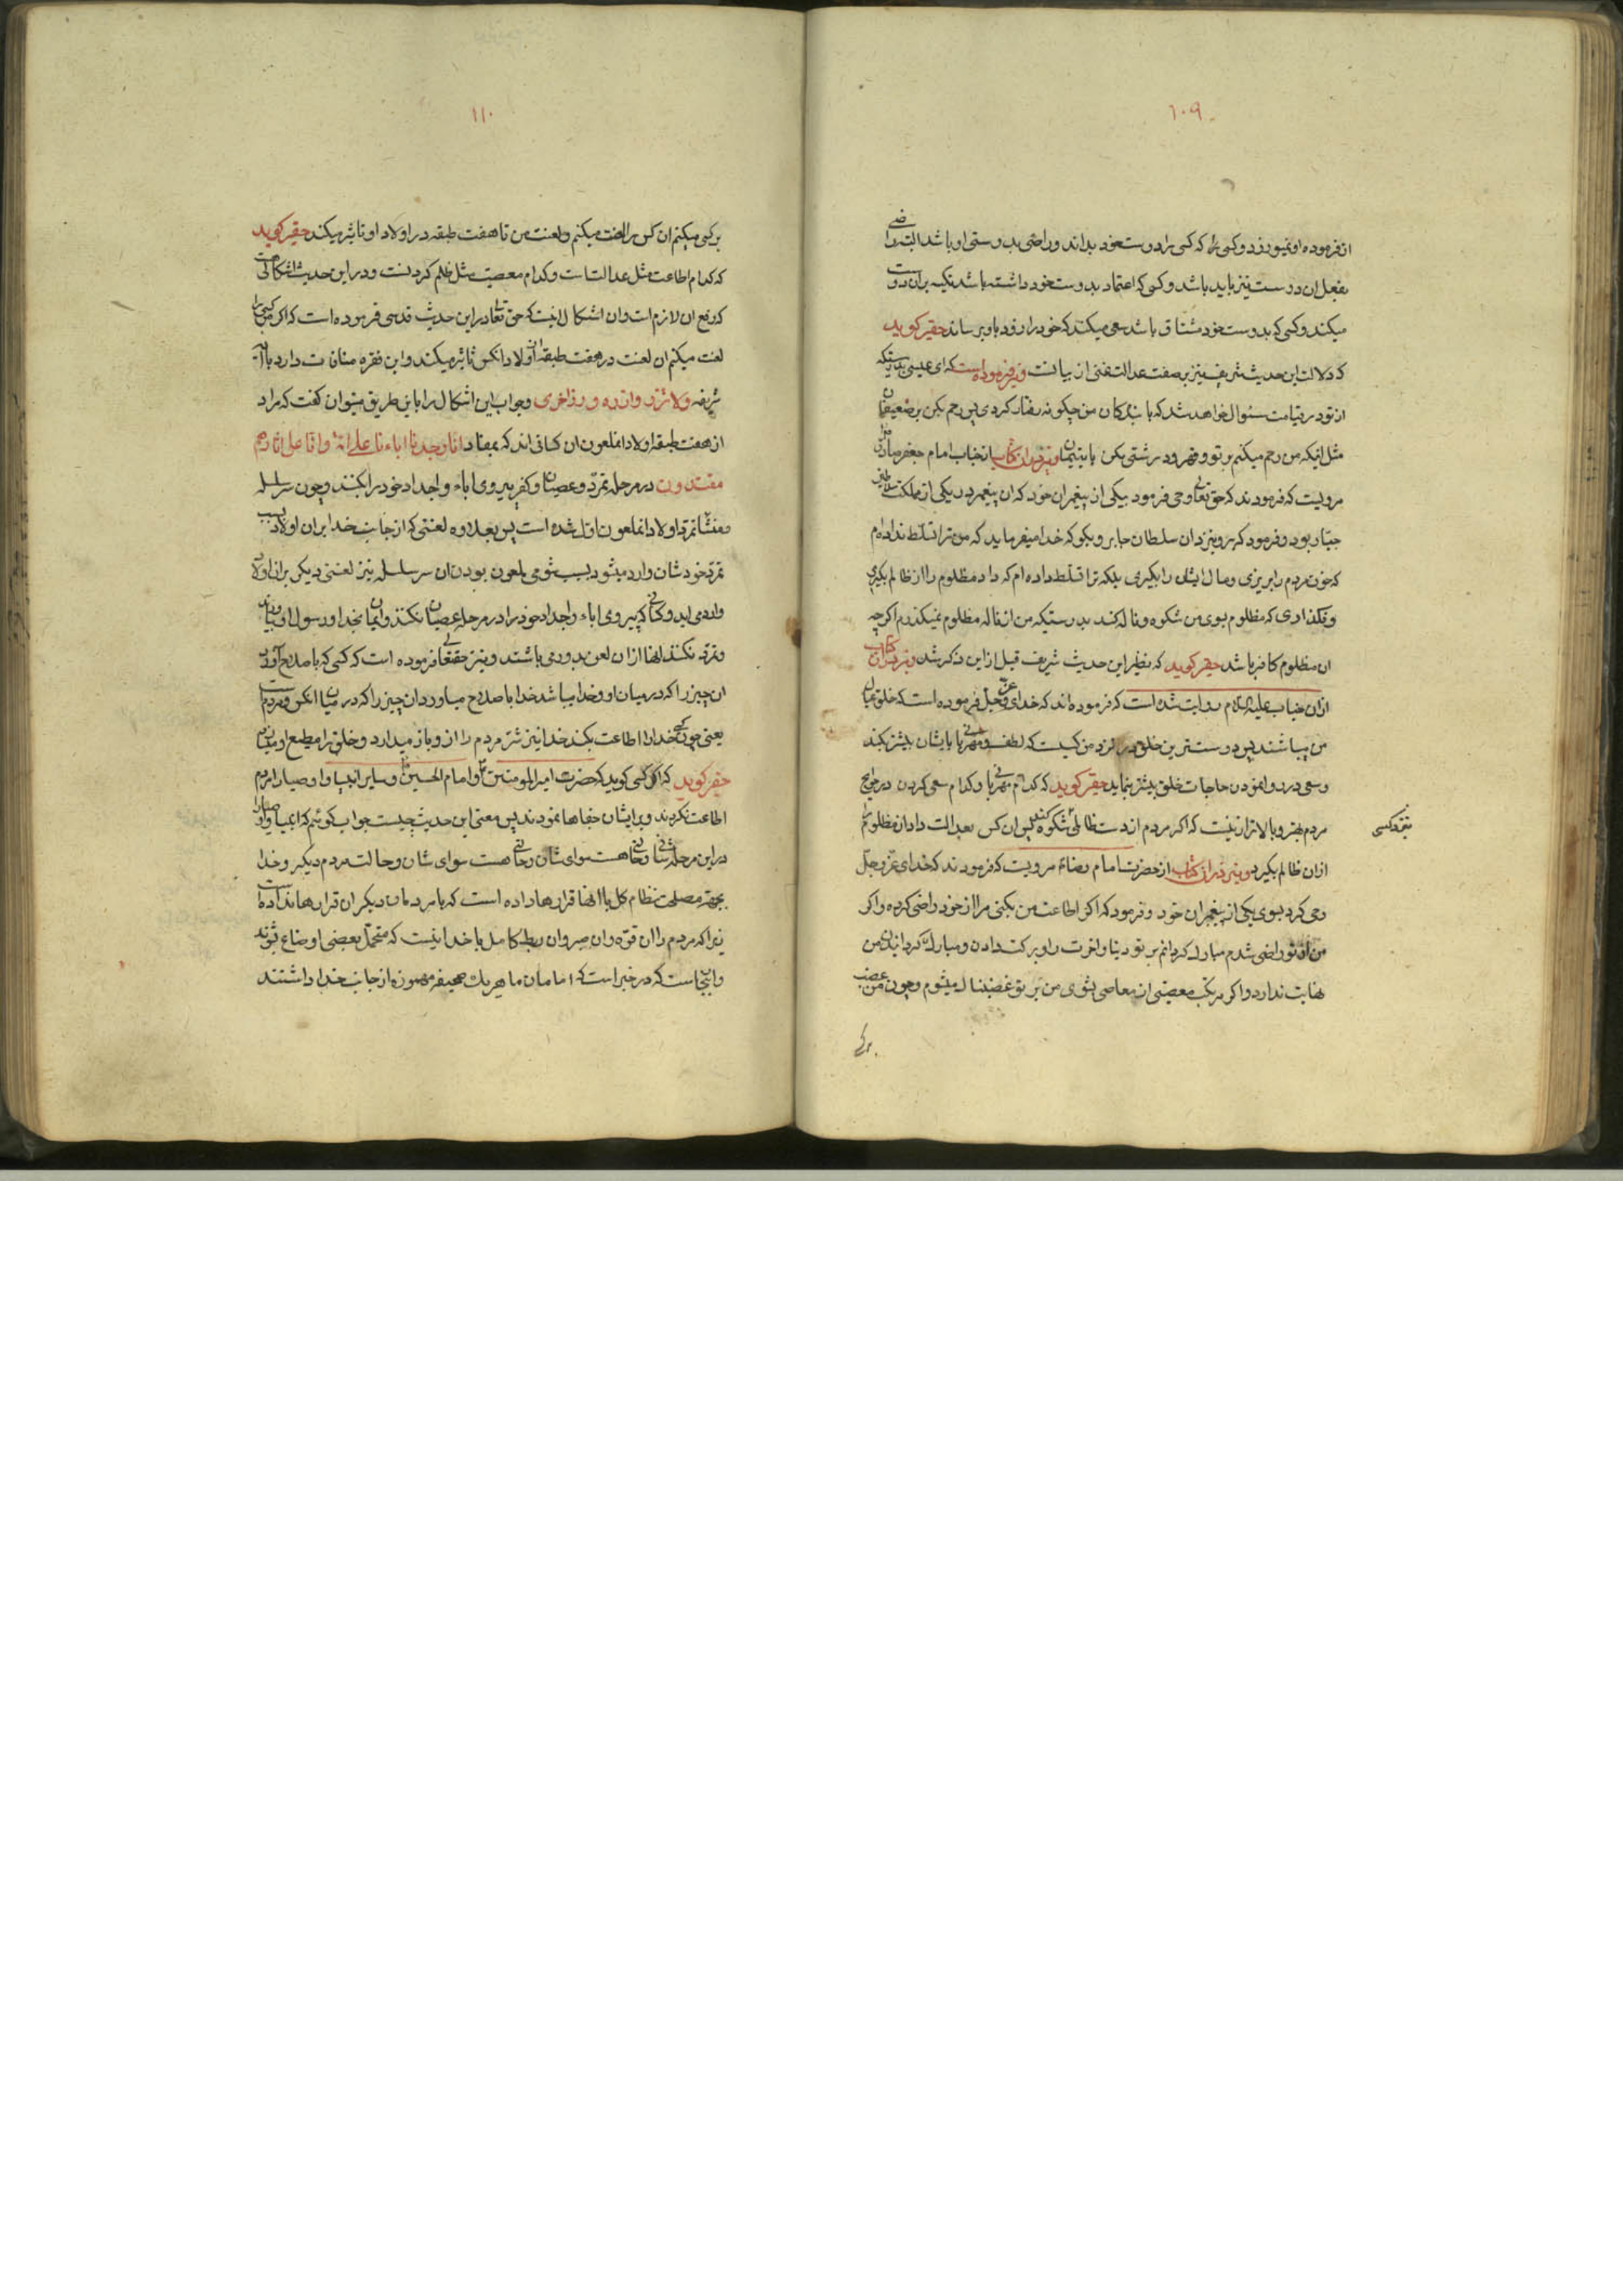 ۱۰۹
از فرموده او نمیورزد و کسی را که کسی را دوست خود بداند و راضی بدوستی او باشد البته راضی
بفعل ان دوست نیز باید باشد و کسی که اعتماد بدوست خود داشته باشد تکیه بران دوست
میکند و کسی که بدوست خود مشتاق باشد سعی میکند که خود را زود باو برساند حقیر کوید
که دلالت این حدیث شریف نیز بر صفت عدالت غنی از بیانست و نیز فرموده است که ای عیسی بدرستیکه
از تو در قیامت سئوال خواهد شد که با بندکان من چکونه رفتار کردی پس رحم بکن بر ضعیفان
مثل اینکه من رحم میکنم بر تو و قهر و درشتی مکن با یتیمان و نیز در ان کتاب از جناب امام جعفر صادق
مرویست که فرمودند که حق تعالی وحی فرمود بیکی از پیغمبران خود که ان پیغمبر در یکی از مملکت سلاطین
جبار بود و فرمود که برو بنزد ان سلطان جابر و بکو که خدا میفرماید که من ترا تسلط نداده‌ام
که خون مردم را بریزی و مال ایشان را بگیری بلکه ترا تسلط داده ام که داد مظلوم را از ظالم بگیری
و نکذاری که مظلوم بسوی من شکوه و ناله کند بدرستیکه من از ناله مظلوم نمیکذرم اکر چه
ان مظلوم کافر باشد حقیر کوید که نظیر این حدیث شریف قبل از این ذکر شد و نیز در ان کتاب
از ان جناب علیه السلام روایت شده است که فرموده‌اند که خدای عز و جل فرموده است که خلق عیال
من میباشند پس دوست ترین خلق در نزد من کسیست که لطف و مهربانی با ایشان بیشتر بکند
و سعی در روا نمودن حاجات خلق بیشتر بنماید حقیر کوید که کدام مهربانی و کدام سعی کردن در حوایج
مردم بهتر و بالاتر از نیست که اکر مردم از دست ظالمی شکوه کنند پس ان کس بعدالت داد ان مظلوم را
از ان ظالم بگیرد و نیز در ان کتاب از حضرت امام رضا مرویست که فرمودند که خدای عز و جل
وحی کرد بسوی یکی از پیغمبران خود و فرمود که اکر اطاعت من بکنی مرا از خود راضی کرده و اکر
من از تو راضی شدم مبارک کردانم بر تو دنیا و اخرت را و برکت دادن و مبارک کردانیدن من
نهایت ندارد و اکر مرتکب معصیتی از معاصی بشوی من بر تو غضبناک میشوم و چون من غضب
۱۱۰
بر کسی میکنم ان کس را لعنت میکنم و لعنت من تا هفت طبقه در اولاد او تاثیر میکند حقیر کوید
که کدام اطاعت مثل عدالت است و کدام معصیت مثل ظلم کردنست و در این حدیث اشکالی است
که رفع ان لازم است و ان اشکال اینست که حق تعالی در این حدیث قدسی فرموده است که اکر من کسی را
لعنت میکنم ان لعنت در هفت طبقه از اولاد انکس تاثیر میکند و این فقره منافات دارد با آیه
شریفه ولا تزر وازرة وزر اخری و جواب این اشکال را باین طریق میتوان کفت که مراد
از هفت طبقه اولاد انملعون ان کسانی اند که بمفاد انا وجدنا اباءنا علی امة وانا علی اثارهم
مقتدون در مرحله تمرد و عصیان و کفر پیروی اباء و اجداد خود را بکنند و چون سر سلسله
و منشأ تمرد اولاد انملعون اول شده است پس بعلاوه لعنتی که از جانب خدا بران اولاد بسبب
تمرد خودشان وارد میشود بسبب شومی ملعون بودن ان سر سلسله نیز لعنتی دیکر بر ان اولاد
وارد می اید و کسانی که پیروی اباء و اجداد خود را در مرحله عصیان نکنند و ایمان بخدا و رسول او بیاورند
و تمرد نکنند انها از ان لعن بدور می باشند و نیز حقتعالی فرموده است که کسی که باصلاح آورد
ان چیز را که در میان او و خدا میباشد خدا باصلاح میاورد ان چیز را که در میان انکس و مردم است
یعنی چون کسی خدا را اطاعت بکند خدا نیز شر مردم را از او باز میدارد و خلق را مطیع او میسازد
حقیر کوید که اکر کسی کوید که حضرت امیر المومنین و امام الحسین و سایر انبیا و اوصیا را مردم
اطاعت نکردند و بر ایشان جفاها نمودند پس معنی این حدیث چیست جواب کوئیم که انبیا و اوصیا را
در این مرحله شانی و حالتی هست سوای شان و حالت مردم دیکر و خدا
بجهة مصلحت نظام کل با انها قرارها داده است که با مردمان دیکر ان قرارها نداده است
زیرا که مردم را ان قوه و ان صبر و ان ربط کامل با خدا نیست که متحمل بعضی اوضاع شوند
و اینجاست که در خبر است که امامان ما هر یک صحیفه ممهوره از جانب خدا داشتند